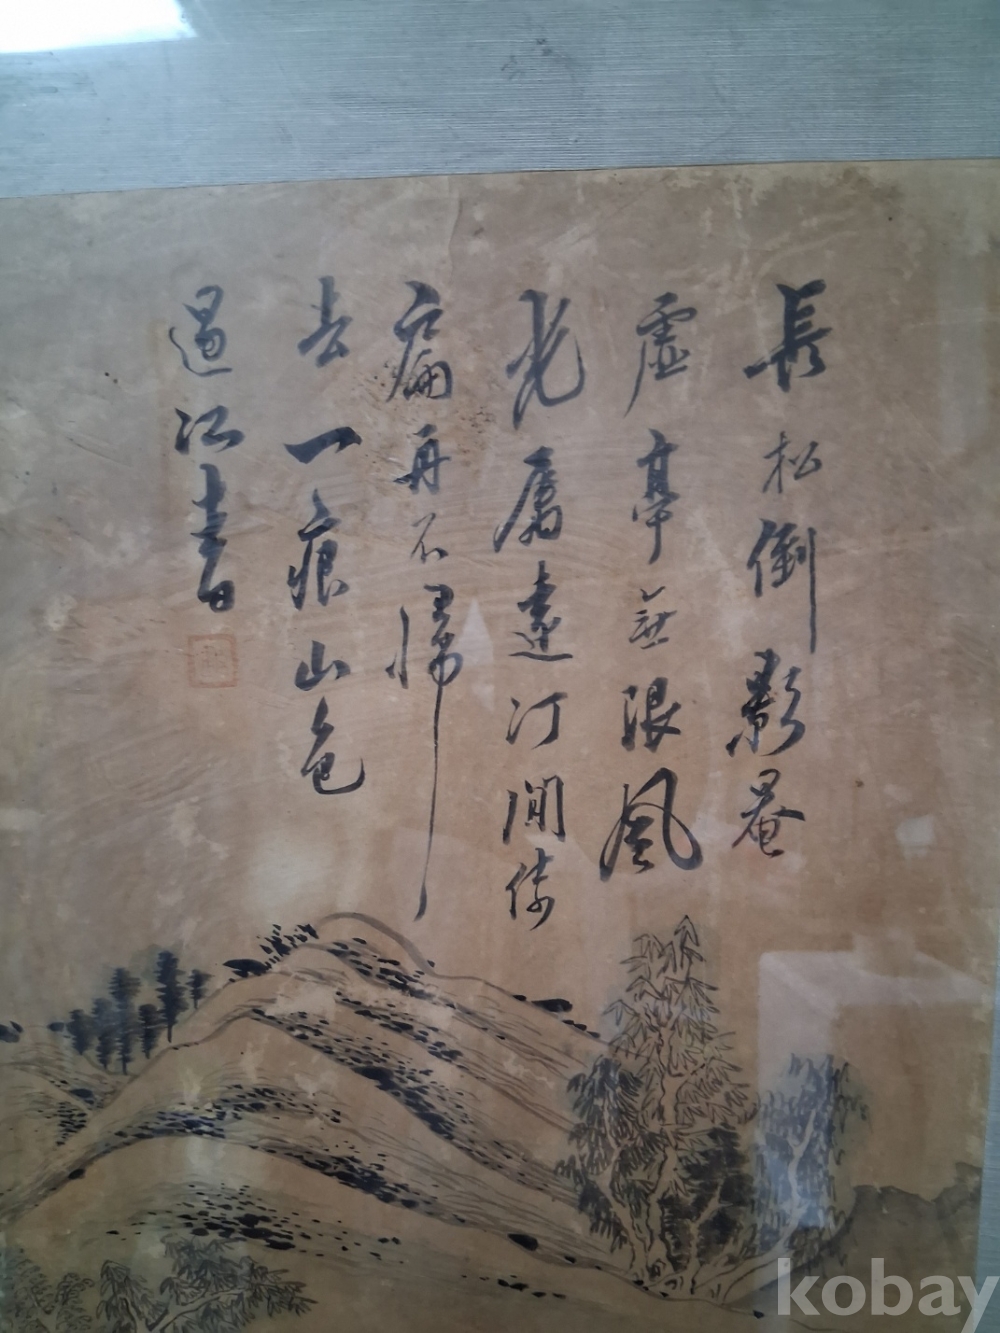 長松倒影罨
虛亭無限風
光屬遠汀閒倚
扁舟不歸
去一痕山色
過江青
kobay